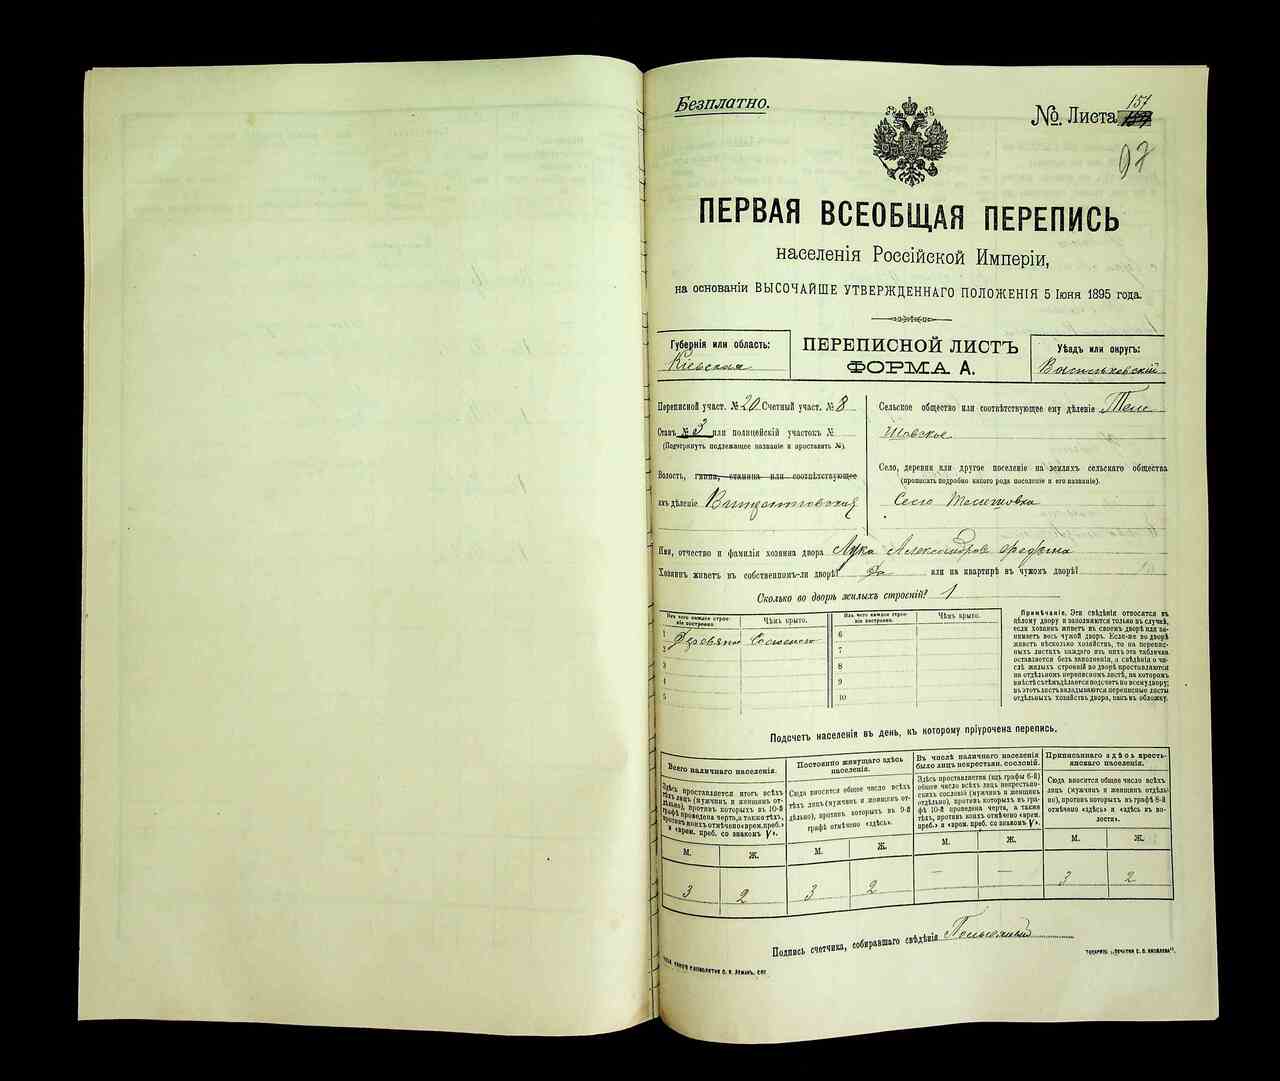 Безплатно.
№ Листа 157
97
ПЕРВАЯ ВСЕОБЩАЯ ПЕРЕПИСЬ
населенія Россійской Имперіи,
на основаніи ВЫСОЧАЙШЕ УТВЕРЖДЕННАГО ПОЛОЖЕНІЯ 5 Іюня 1895 года.
Губернія или область:
Кіевская
ПЕРЕПИСНОЙ ЛИСТЪ
ФОРМА А.
Уѣздъ или округъ:
Васильковскій
Переписной участ. № 20 Счетный участ. № 8
Станъ № 3 или полицейскій участокъ №
(Подчеркнуть подлежащее названіе и проставить №).
Волость, гмина, станица или соотвѣтствующее
имъ дѣленіе
Сельское общество или соотвѣтствующее ему дѣленіе Теле
шовское
Село, деревня или другое поселеніе на земляхъ сельскаго общества
(прописать подробно какого рода поселеніе и его названіе).
Село Телешовка
Имя, отчество и фамилія хозяина двора Лука Александровъ
Хозяинъ живетъ въ собственномъ-ли дворѣ? Да или на квартирѣ въ чужомъ дворѣ?
Сколько во дворѣ жилыхъ строеній? 1
Изъ чего каждое строе-
ніе построено.
Чѣмъ крыто.
Изъ чего каждое строе-
ніе построено.
Чѣмъ крыто.
1
2
3
4
5
6
7
8
9
10
Примѣчаніе. Эти свѣдѣнія относятся къ
цѣлому двору и заполняются только въ случаѣ,
если хозяинъ живетъ въ своемъ дворѣ или за-
нимаетъ весь чужой дворъ. Если-же во дворѣ
живетъ нѣсколько хозяйствъ, то на перепис-
ныхъ листахъ каждаго изъ нихъ эта табличка
оставляется безъ заполненія, а свѣдѣнія о чи-
слѣ жилыхъ строеній во дворѣ проставляются
на отдѣльномъ переписномъ листѣ, на которомъ
вмѣстѣ съ тѣмъ дѣлается подсчетъ по всему двору;
въ этотъ листъ вкладываются переписные листы
отдѣльныхъ хозяйствъ двора, какъ въ обложку.
Подсчетъ населенія въ день, къ которому пріурочена перепись.
Всего наличнаго населенія.
Здѣсь проставляется итогъ всѣхъ
тѣхъ лицъ (мужчинъ и женщинъ от-
дѣльно), противъ которыхъ въ 10-й
графѣ проведена черта, а также тѣхъ,
противъ коихъ отмѣчено «врем. преб.»
и «врем. преб. со знакомъ V».
Постоянно живущаго здѣсь
населенія.
Сюда вносится общее число всѣхъ
тѣхъ лицъ (мужчинъ и женщинъ от-
дѣльно), противъ которыхъ въ 9-й
графѣ отмѣчено «здѣсь».
Въ числѣ наличнаго населенія
было лицъ некрестьян. сословій.
Здѣсь проставляется (изъ графы 6-й)
общее число всѣхъ лицъ некрестьян-
скихъ сословій (мужчинъ и женщинъ
отдѣльно), противъ которыхъ въ гра-
фѣ 10-й проведена черта, а также
тѣхъ, противъ коихъ отмѣчено «врем.
преб.» и «врем. преб. со знакомъ V».
Приписаннаго здѣсь кресть-
янскаго населенія.
Сюда вносится общее число всѣхъ
лицъ (мужчинъ и женщинъ отдѣль-
но), противъ которыхъ въ графѣ 8-й
отмѣчено «здѣсь» и «здѣсь въ во-
лости».
М. Ж. М. Ж. М. Ж. М. Ж.
3 2 3 2 — — 3 2
Подпись счетчика, собиравшаго свѣдѣнія